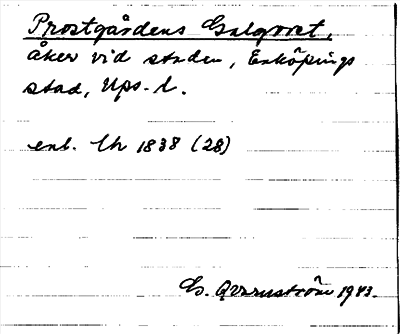 Prostgårdens Galgvret,
åker vid staden, Enköpings
stad, Ups. l.
enl. Ch 1838 (28)
G. Qvarnström 1943.